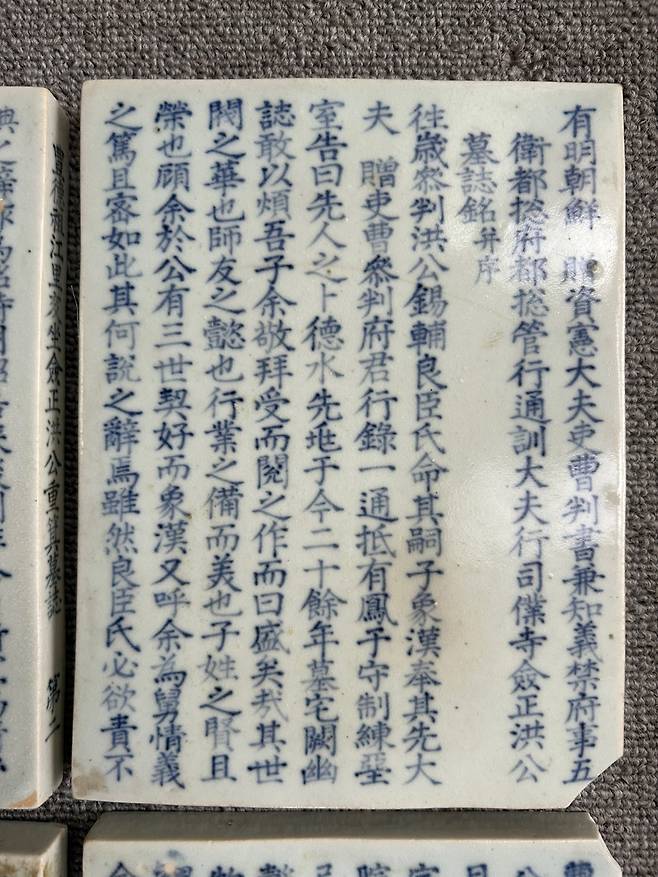 有明朝鮮 贈資憲大夫吏曹判書兼知義禁府事五
衛都揔府都揔管行通訓大夫行司僕寺僉正洪公
墓誌銘 并序
徃歲叅判洪公錫輔良臣氏命其嗣子象漢奉其先大
夫 贈吏曹叅判府君行錄一通抵有鳳于守制練堊
室告曰先人之卜德水先垗于今二十餘年墓宅闕幽
誌敢以煩吾子余敬拜受而閱之作而曰盛矣哉其世
閥之華也師友之懿也行業之備而美也子姓之賢且
榮也顧余於公有三世契好而象漢又呼余為舅情義
之篤且審如此其何說之辭焉雖然良臣氏必欲責不
豊德祖江里亥坐僉正洪公重箕墓誌 第二